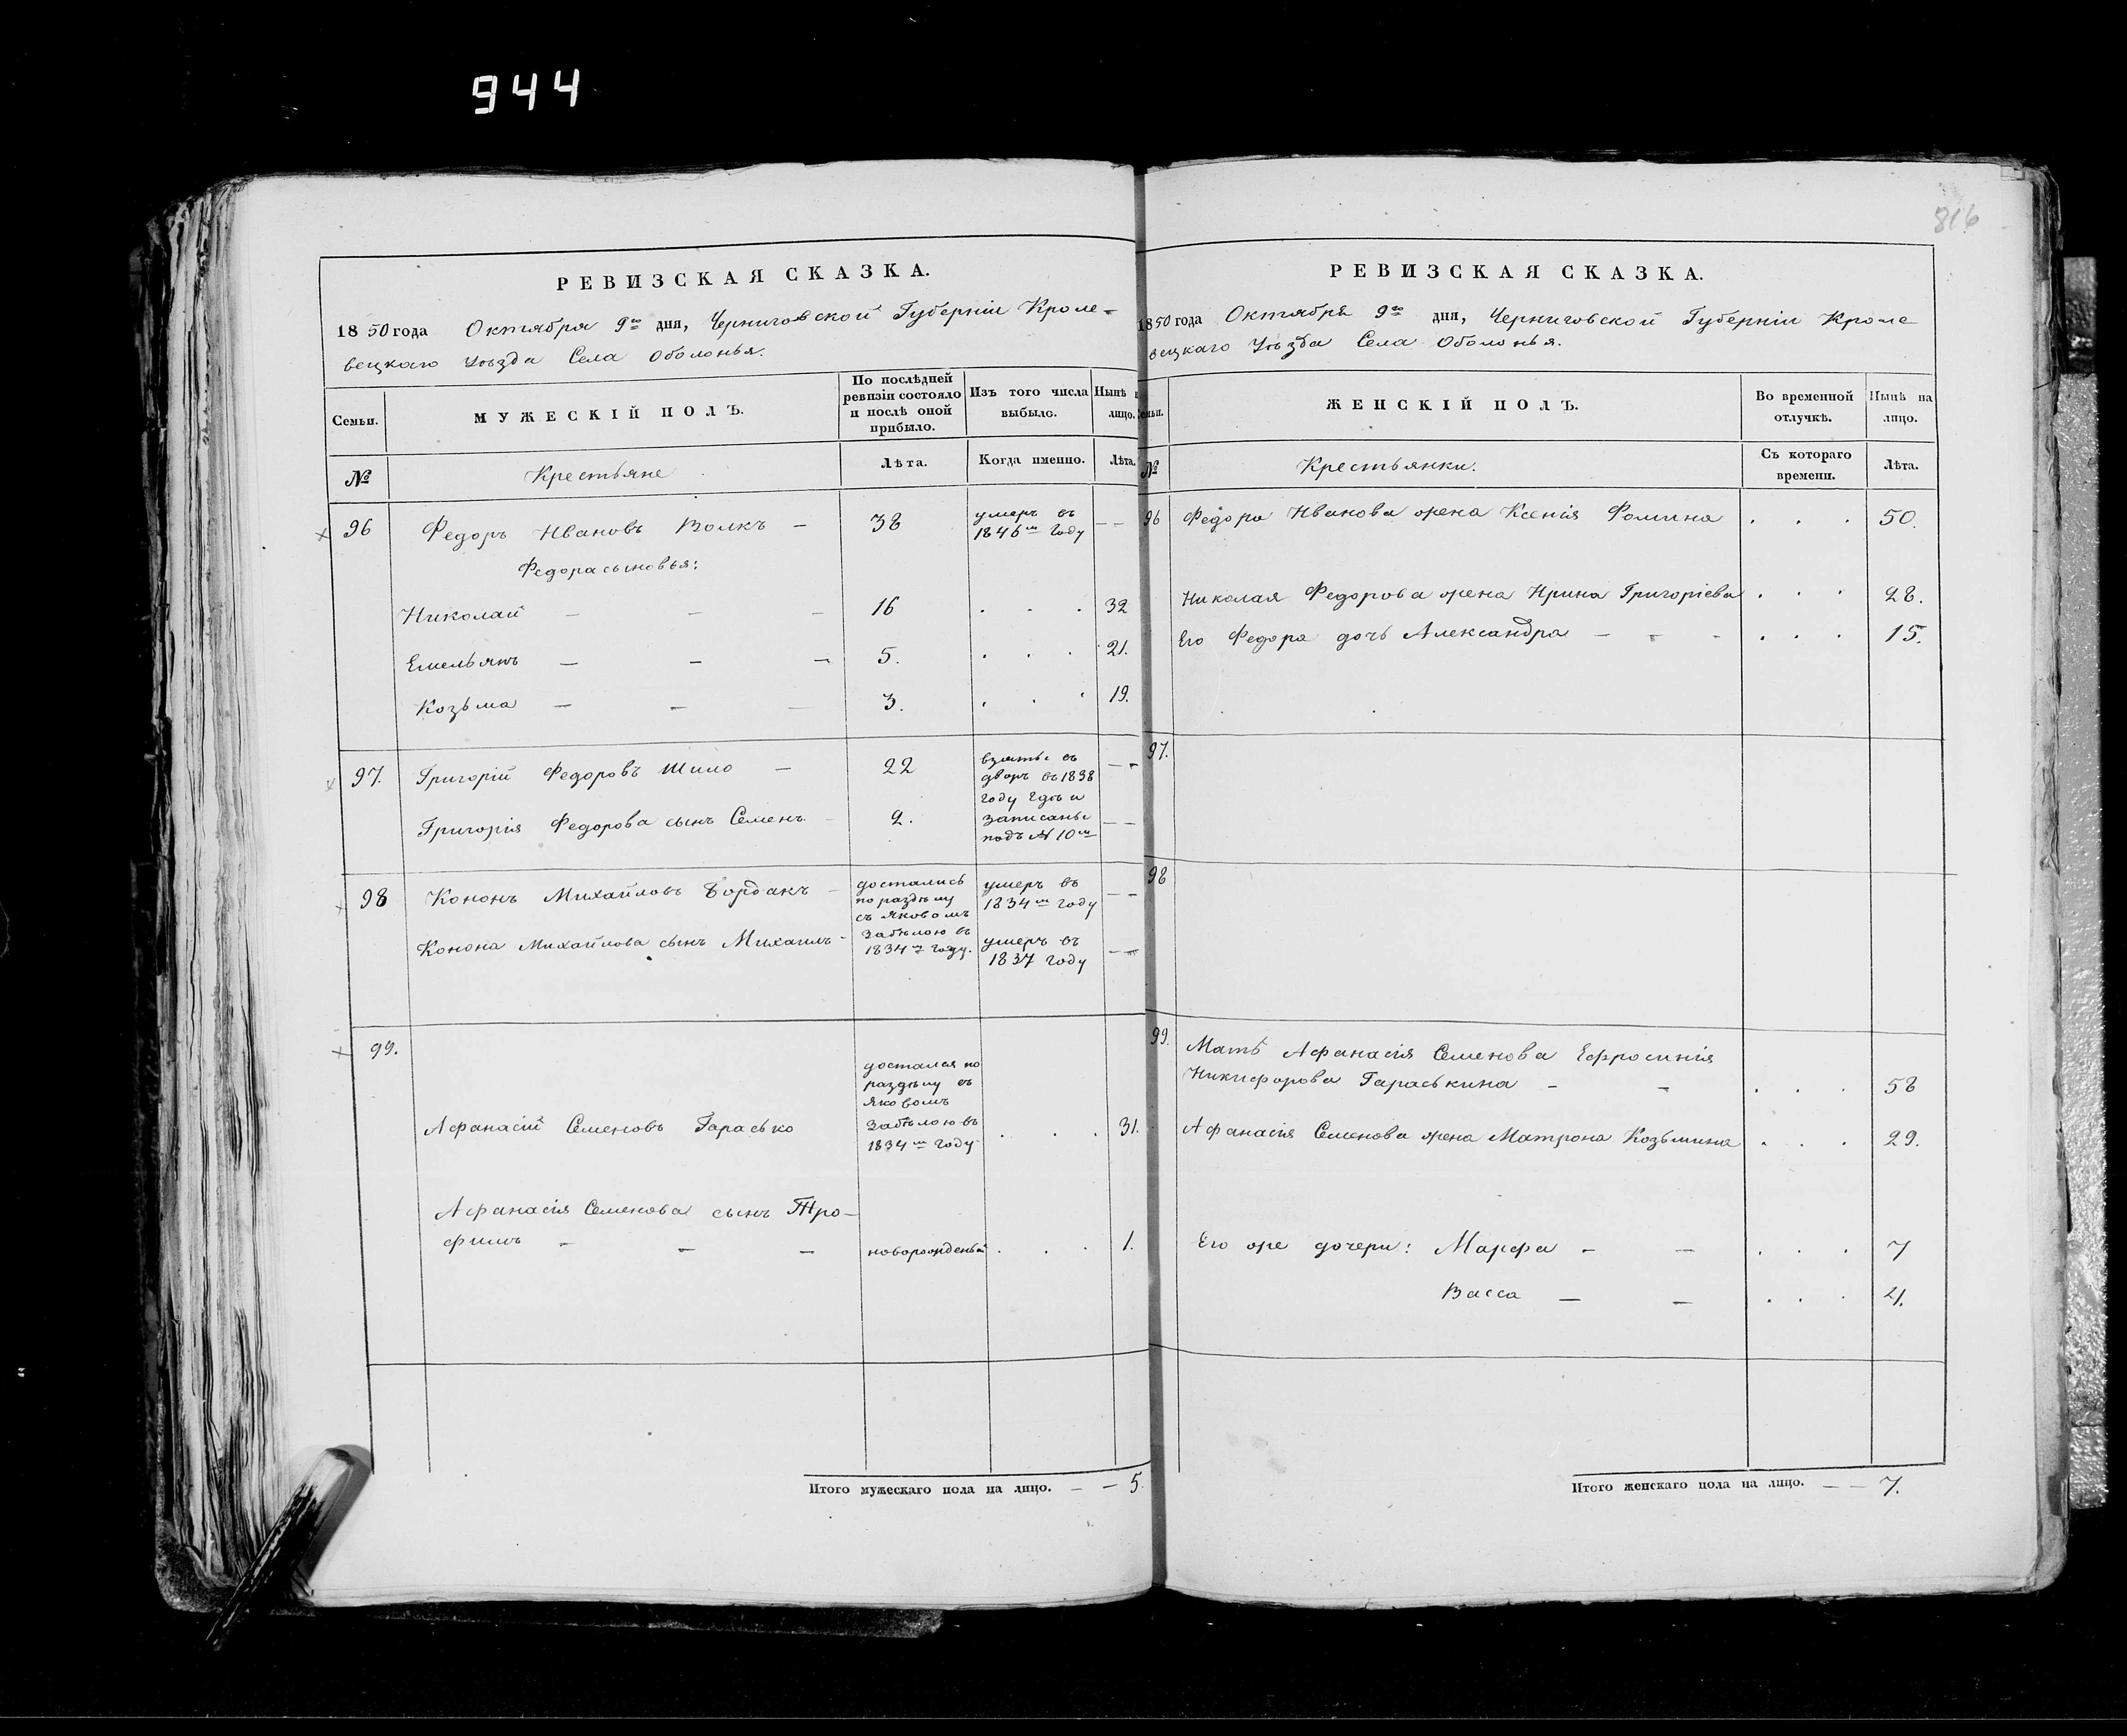 944
816
РЕВИЗСКАЯ СКАЗКА.
1850 года Октября 9го дня, Черниговской Губерніи Кроле-
вецкаго Уѣзда Села Оболонья.
Семьи.
МУЖЕСКІЙ ПОЛЪ.
По послѣдней
ревизіи состояло
и послѣ оной
прибыло.
Изъ того числа
выбыло.
Нынѣ н
лицо.
№
Крестьяне
Лѣта.
Когда именно.
Лѣта.
96 Федоръ Ивановъ Волкъ — 38 умеръ въ
1846м году — —
Федора сыновья:
Николай — — — 16 . . . 32
Емельянъ — — — 5. . . . 21.
Козьма — — — 3. . . . 19.
97. Григорій Федоровъ Шило — 22 — —
Григорія Федорова сынъ Семенъ — 2. — —
взяты въ
дворъ въ 1838
году гдѣ и
записаны
подъ № 10м
98 Кононъ Михайловъ Бордакъ — умеръ въ
1834м году — —
Конона Михайлова сынъ Михаилъ — умеръ въ
1837 году — —
достались
по раздѣлу
съ Яковомъ
Забѣлою въ
1834м году.
99.
Афанасій Семеновъ Гарасько . . . 31.
достался по
раздѣлу съ
Яковомъ
Забѣлою въ
1834м году
Афанасія Семенова сынъ Тро-
фимъ — — — новорожденый . . . 1.
Итого мужескаго пола на лицо. — — 5.
РЕВИЗСКАЯ СКАЗКА.
1850 года Октября 9го дня, Черниговской Губерніи Кроле
вецкаго Уѣзда Села Оболонья.
Семьи.
ЖЕНСКІЙ ПОЛЪ.
Во временной
отлучкѣ.
Нынѣ на
лицо.
№
Крестьянки.
Съ котораго
времени.
Лѣта.
96 Федора Иванова жена Ксенія Фомина . . . 50.
Николая Федорова жена Ирина Григоріева . . . 28.
Его Федора дочь Александра — — — . . . 15.
97.
98
99. Мать Афанасія Семенова Ефросинія
Никифорова Гараськина — — . . . 58
Афанасія Семенова жена Матрона Козьмина . . . 29.
Его же дочери: Марфа — — . . . 7
Васса — — . . . 4.
Итого женскаго пола на лицо. — — 7.